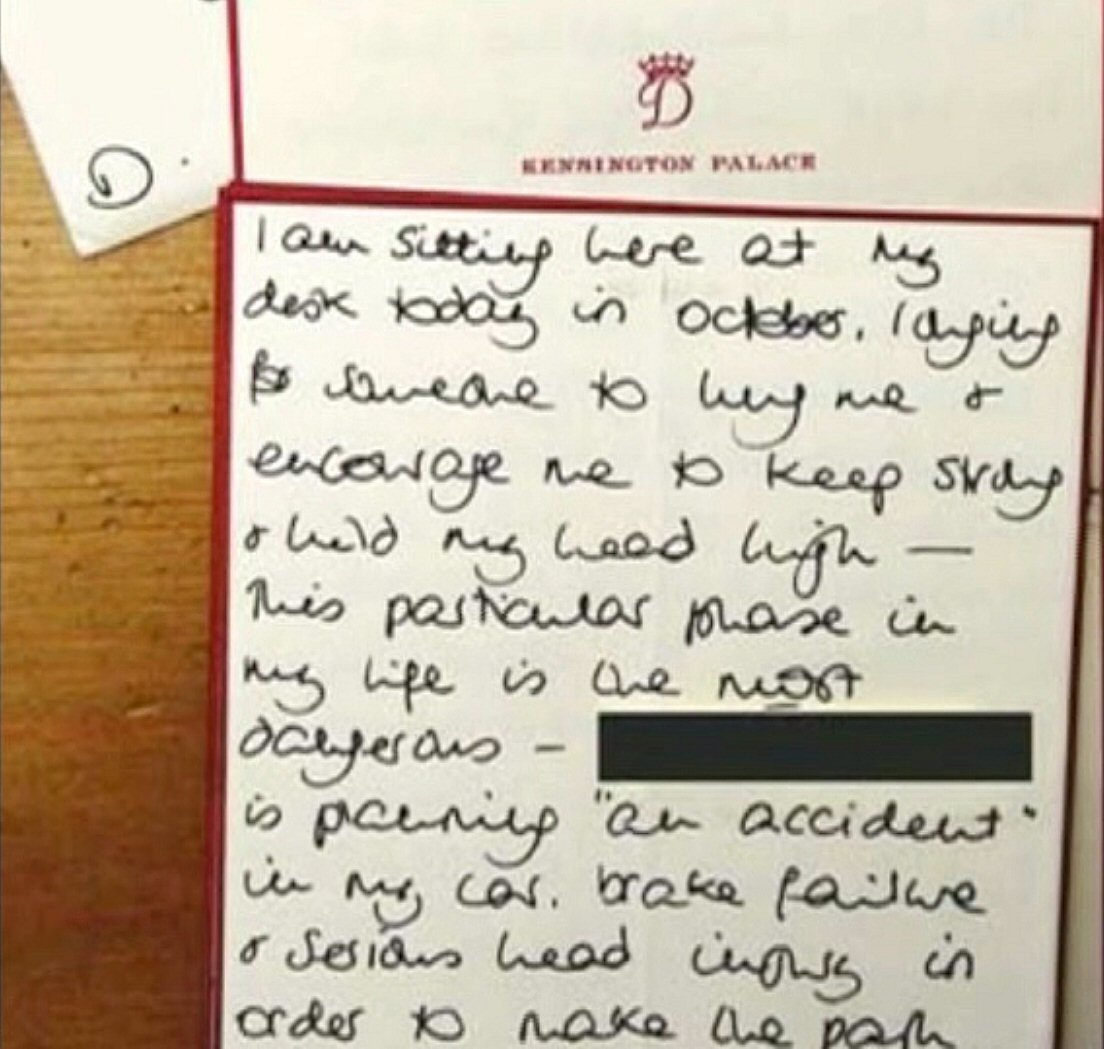 D
KENSINGTON PALACE
D.
I am sitting here at my
desk today in October, longing
for someone to hug me &
encourage me to keep strong
& hold my head high —
This particular phase in
my life is the most
dangerous —
is planning "an accident"
in my car. brake failure
& serious head injury in
order to make the path